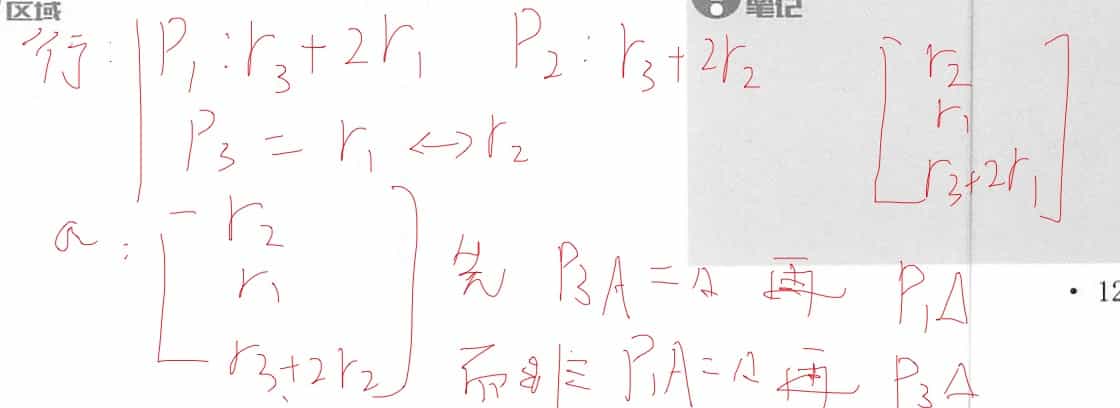 区域
笔记
行: P₁:r₃+2r₁ P₂:r₃+2r₂
P₃ = r₁ ↔ r₂
[r₂
r₁
r₃+2r₁]
a: [r₂
r₁
r₃+2r₂]
先 P₃A=Δ 再 P₁Δ
而非 P₁A=Δ 再 P₃Δ
· 12